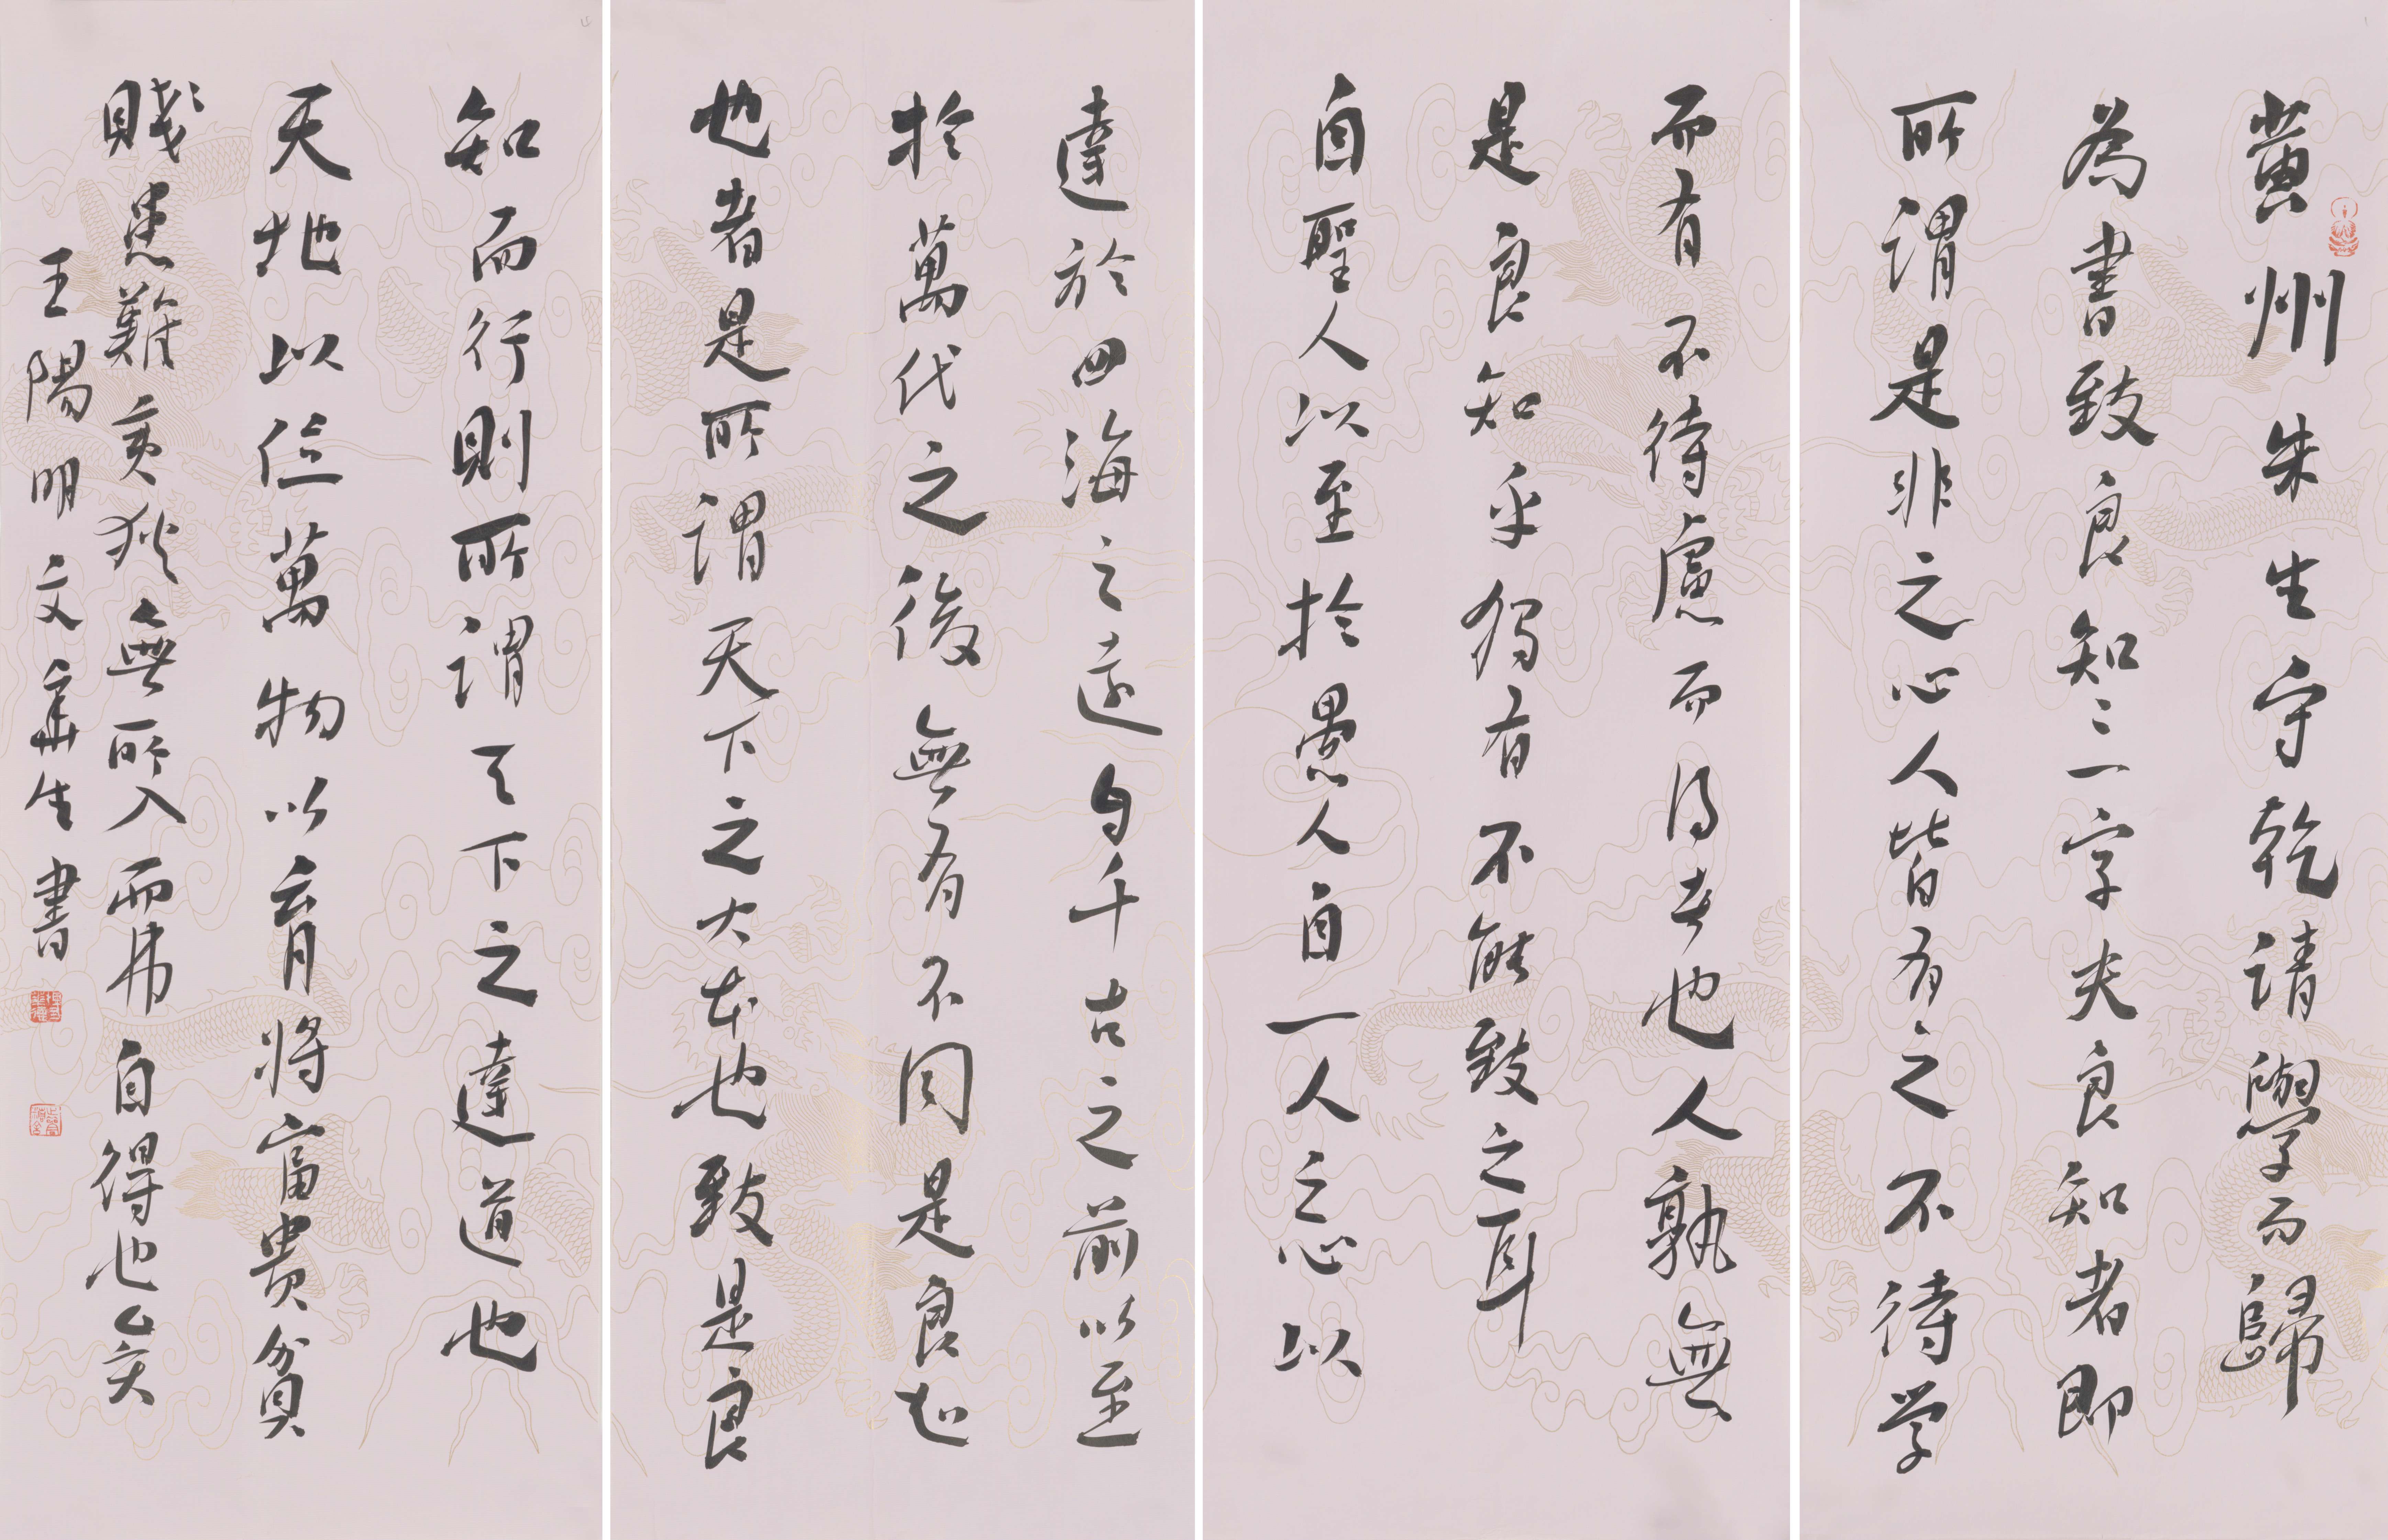 黄州朱生守乾請學而歸
為書致良知三字夫良知者即
所謂是非之心人皆有之不待学
而有不待慮而得者也人孰無
是良知乎獨有不能致之耳
自聖人以至於愚人自一人之心以
達於四海之遠自千古之前以至
於萬代之後無有不同是良知
也者是所謂天下之大本也致是良
知而行則所謂天下之達道也
天地以位萬物以育將富貴貧
賤患難夷狄無所入而弗自得也矣
王陽明文 生書